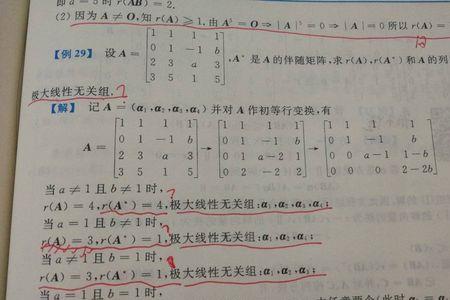 即 a = 5 时 r(AB) = 2.
(2) 因为 A ≠ O, 知 r(A) ≥ 1, 由 A⁵ = O ⇒ |A|⁵ = 0 ⇒ |A| = 0 所以 r(A) =
【例 29】 设 A = [1 1 1 1; 0 1 -1 b; 2 3 a 3; 3 5 1 5], A* 是 A 的伴随矩阵, 求 r(A), r(A*) 和 A 的列
极大线性无关组.
【解】 记 A = (α₁, α₂, α₃, α₄) 并对 A 作初等行变换, 有
A = [1 1 1 1; 0 1 -1 b; 2 3 a 3; 3 5 1 5] → [1 1 1 1; 0 1 -1 b; 0 1 a-2 1; 0 2 -2 2] → [1 1 1 1; 0 1 -1 b; 0 0 a-1 1-b; 0 0 0 2-2b]
当 a ≠ 1 且 b ≠ 1 时,
r(A) = 4, r(A*) = 4, 极大线性无关组: α₁, α₂, α₃, α₄;
当 a = 1 且 b ≠ 1 时,
r(A) = 3, r(A*) = 1, 极大线性无关组: α₁, α₂, α₄;
当 a ≠ 1 且 b = 1 时,
r(A) = 3, r(A*) = 1, 极大线性无关组: α₁, α₂, α₃;
当 a = 1 且 b = 1 时,